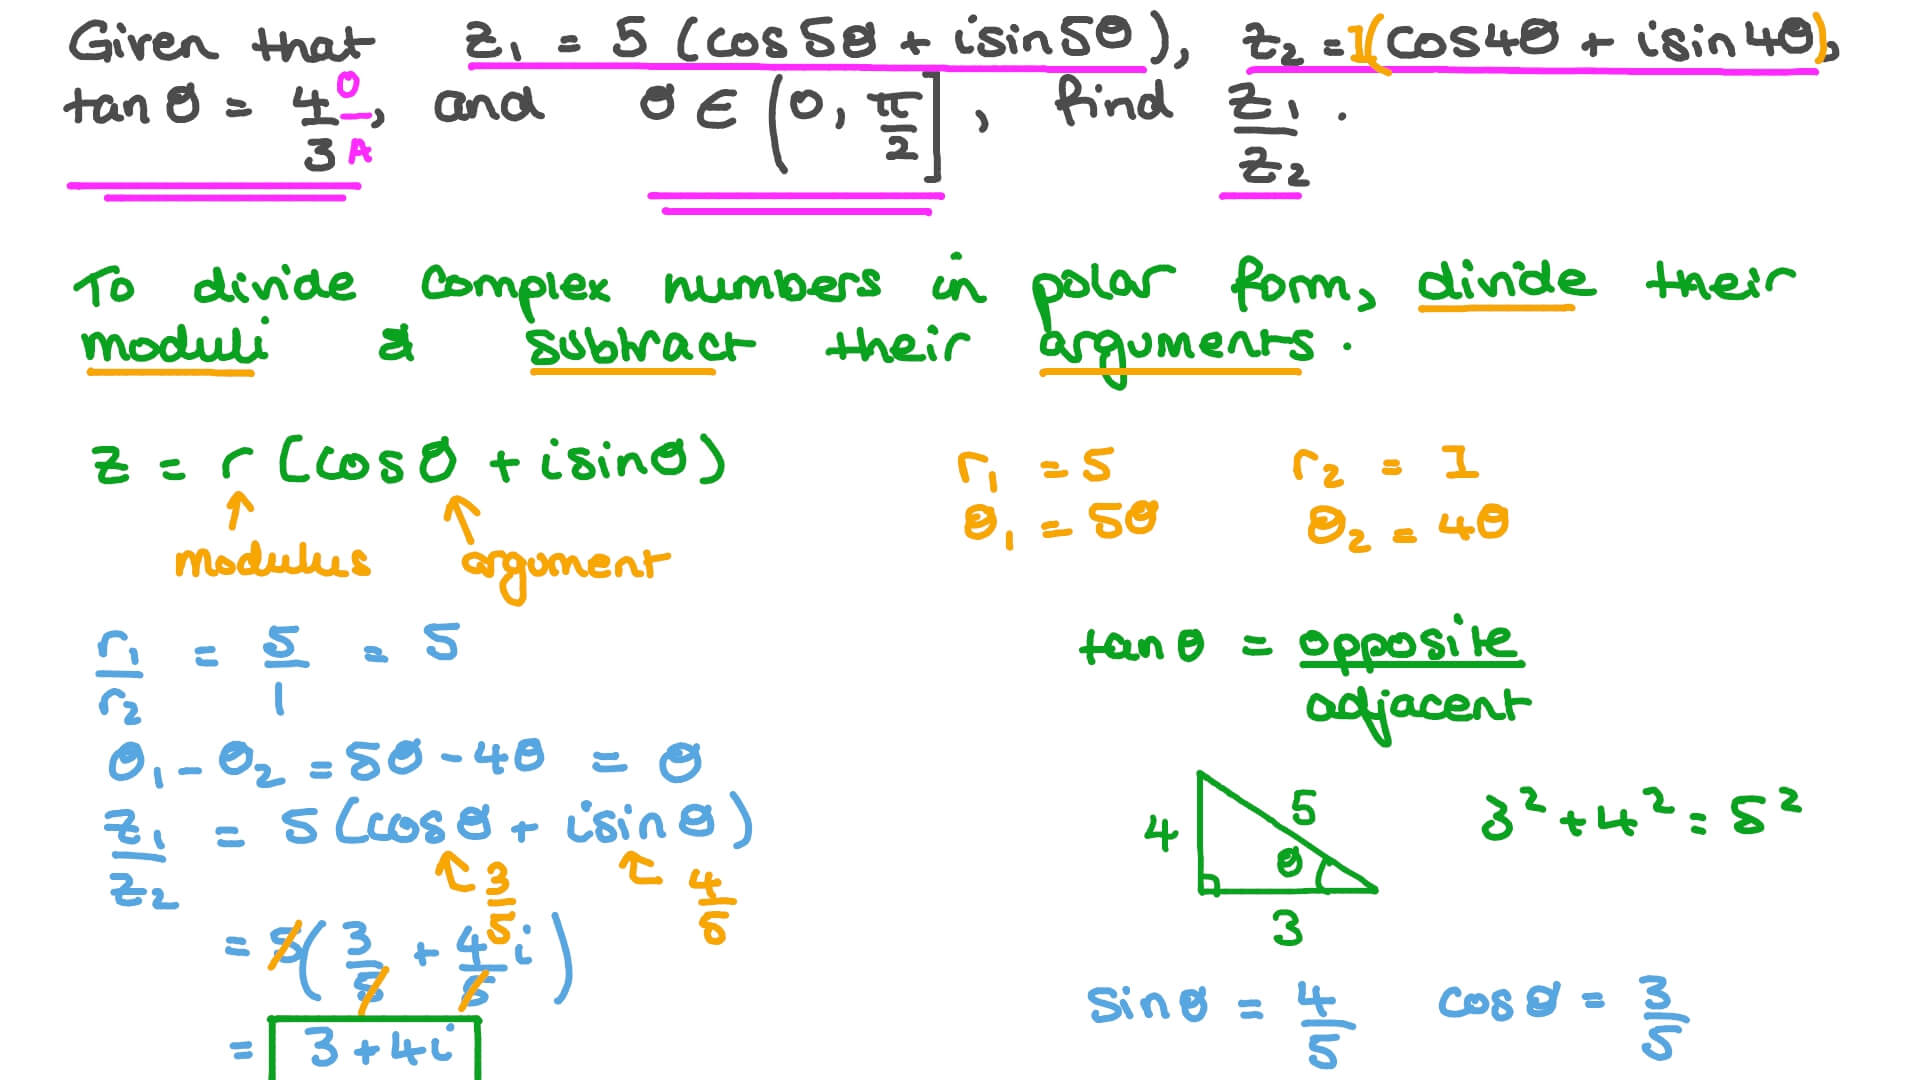 Given that z₁ = 5 (cos5θ + isin5θ), z₂ = 1(cos4θ + isin4θ),
tan θ = 4/3 O/A, and θ ∈ (0, π/2], find z₁/z₂.
To divide complex numbers in polar form, divide their
moduli & subtract their arguments.
z = r (cosθ + isinθ)
modulus argument
r₁ = 5 r₂ = 1
θ₁ = 5θ θ₂ = 4θ
r₁/r₂ = 5/1 = 5
θ₁ - θ₂ = 5θ - 4θ = θ
z₁/z₂ = 5 (cosθ + isinθ)
3/5 4/5
= 5(3/5 + 4/5 i)
= 3 + 4i
tanθ = opposite/adjacent
4 5 θ 3
3² + 4² = 5²
sinθ = 4/5 cosθ = 3/5